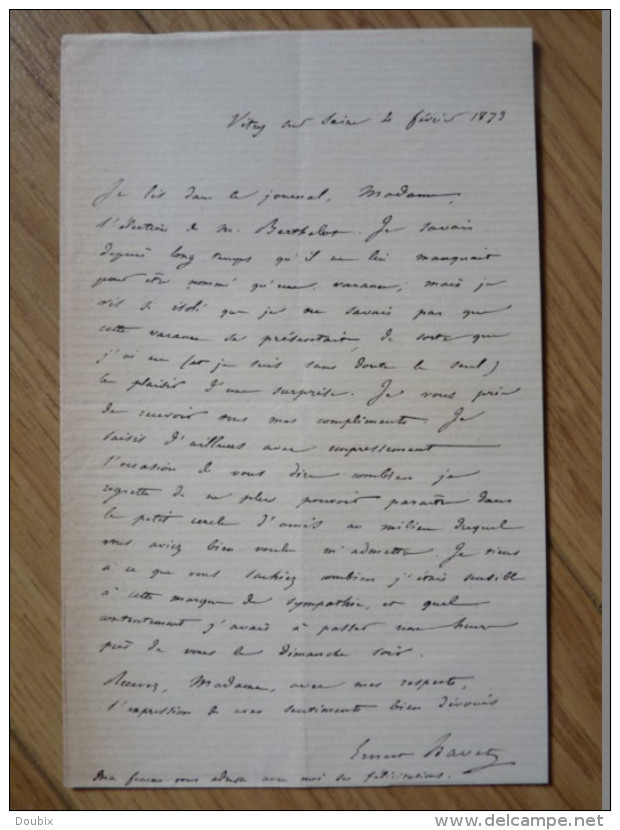 Vitry sur Seine 4 février 1873
Je lis dans le journal, Madame,
l'élection de M. Berthelot. Je savais
depuis long temps qu'il ne lui manquait
pour être nommé qu'une vacance; mais je
vis si isolé que je ne savais pas que
cette vacance se présentait, de sorte que
j'ai eu (et je suis sans doute le seul)
le plaisir d'une surprise. Je vous prie
de recevoir tous mes compliments. Je
saisis d'ailleurs avec empressement
l'occasion de vous dire combien je
regrette de ne plus pouvoir paraître dans
le petit cercle d'amis au milieu duquel
vous aviez bien voulu m'admettre. Je tiens
à ce que vous sachiez combien j'étais sensible
à cette marque de sympathie, et quel
contentement j'avais à passer une heure
près de vous le dimanche soir.
Recevez, Madame, avec mes respects,
l'expression de mes sentiments bien dévoués
Ernest Havet
Ma femme vous adresse avec moi ses félicitations.
Doubix
www.delcampe.net